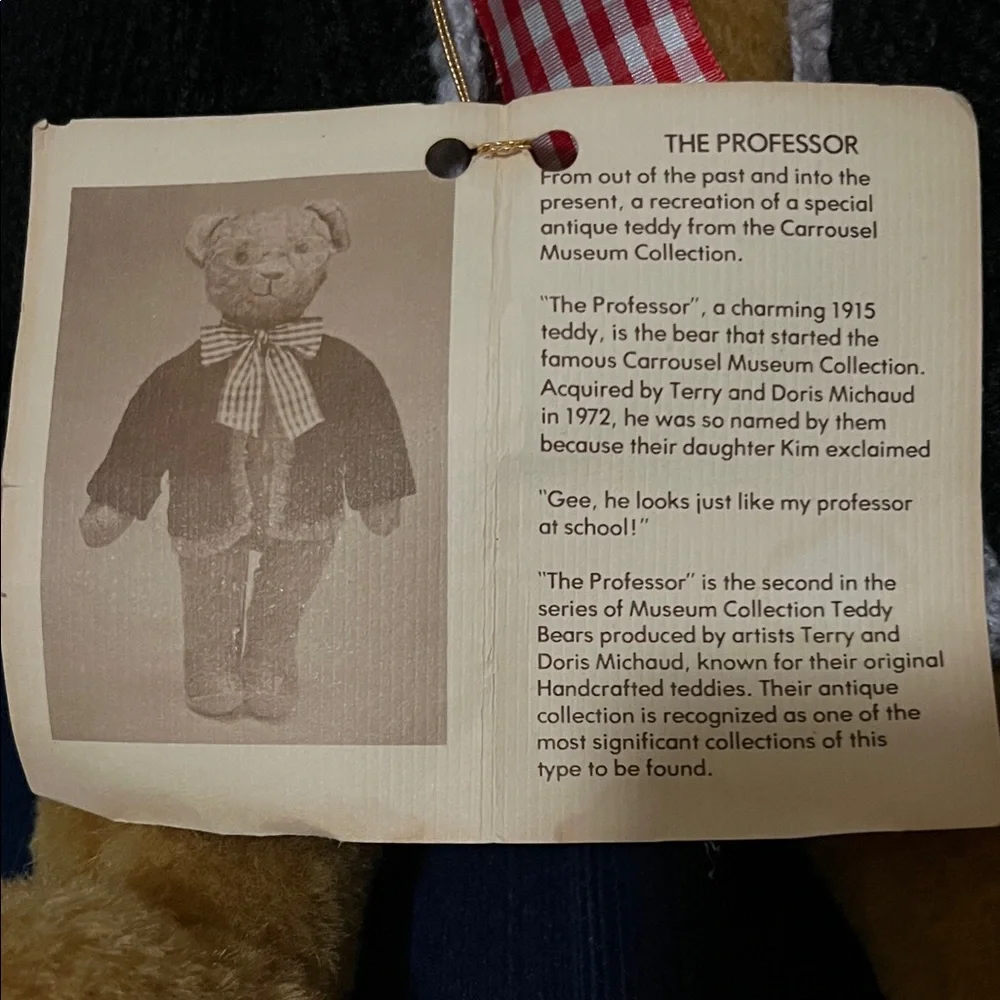 THE PROFESSOR
From out of the past and into the
present, a recreation of a special
antique teddy from the Carrousel
Museum Collection.
"The Professor", a charming 1915
teddy, is the bear that started the
famous Carrousel Museum Collection.
Acquired by Terry and Doris Michaud
in 1972, he was so named by them
because their daughter Kim exclaimed
"Gee, he looks just like my professor
at school!"
"The Professor" is the second in the
series of Museum Collection Teddy
Bears produced by artists Terry and
Doris Michaud, known for their original
Handcrafted teddies. Their antique
collection is recognized as one of the
most significant collections of this
type to be found.